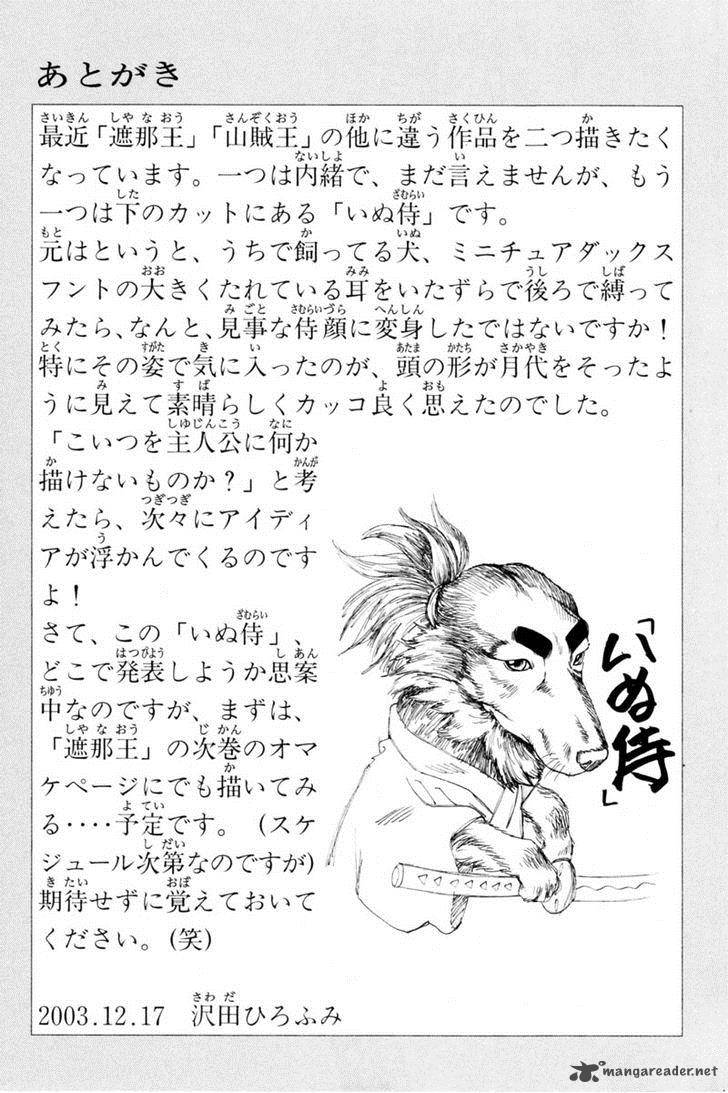 あとがき
最近「遮那王」「山賊王」の他に違う作品を二つ描きたく
なっています。一つは内緒で、まだ言えませんが、もう
一つは下のカットにある「いぬ侍」です。
元はというと、うちで飼ってる犬、ミニチュアダックス
フントの大きくたれている耳をいたずらで後ろで縛って
みたら、なんと、見事な侍顔に変身したではないですか！
特にその姿で気に入ったのが、頭の形が月代をそったよ
うに見えて素晴らしくカッコ良く思えたのでした。
「こいつを主人公に何か
描けないものか？」と考
えたら、次々にアイディ
アが浮かんでくるのです
よ！
さて、この「いぬ侍」、
どこで発表しようか思案
中なのですが、まずは、
「遮那王」の次巻のオマ
ケページにでも描いてみ
る････予定です。(スケ
ジュール次第なのですが)
期待せずに覚えておいて
ください。(笑)
「いぬ侍」
2003.12.17 沢田ひろふみ
mangareader.net